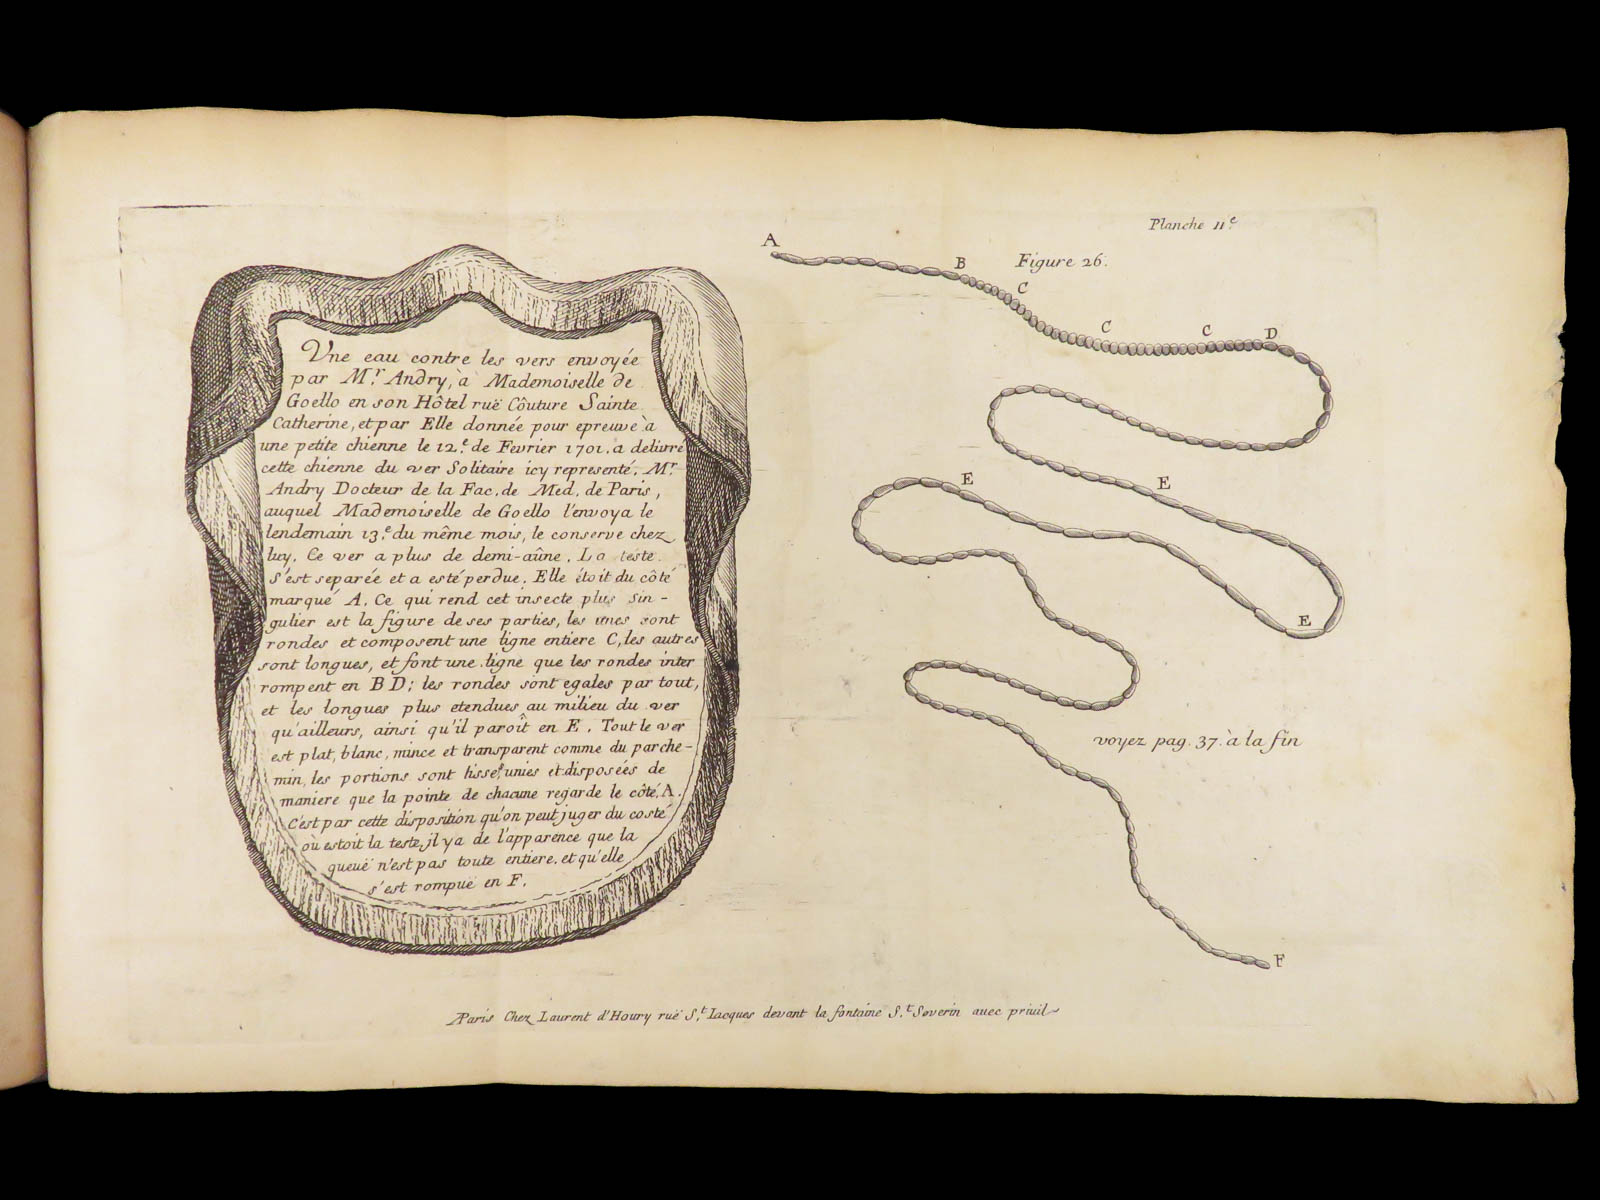 Vne eau contre les vers envoyée
par M.r Andry, à Mademoiselle de
Goello en son Hôtel ruë Côuture Sainte
Catherine, et par Elle donnée pour epreuve à
une petite chienne le 12.e de Fevrier 1701. a delivré
cette chienne du ver Solitaire icy representé. M.r
Andry Docteur de la Fac. de Med. de Paris,
auquel Mademoiselle de Goello l'envoya le
lendemain 13.e du même mois, le conserve chez
luy. Ce ver a plus de demi-aûne. La teste
s'est separée et a esté perdue. Elle étoit du côté
marqué A. Ce qui rend cet insecte plus sin-
gulier est la figure de ses parties, les unes sont
rondes et composent une ligne entiere C, les autres
sont longues, et font une ligne que les rondes inter
rompent en B D; les rondes sont egales par tout,
et les longues plus etendues au milieu du ver
qu'ailleurs, ainsi qu'il paroît en E. Tout le ver
est plat, blanc, mince et transparent comme du parche-
min, les portions sont lisses, unies et disposées de
maniere que la pointe de chacune regarde le côté A.
C'est par cette disposition qu'on peut juger du costé
où estoit la teste, il y a de l'apparence que la
queuë n'est pas toute entiere, et qu'elle
s'est rompuë en F.
Planche 11.e
Figure 26.
A
B
C
C
C
D
E
E
E
voyez pag. 37. à la fin
F
Paris Chez Laurent d'Houry ruë S.t Iacques devant la fontaine S.t Severin avec privil